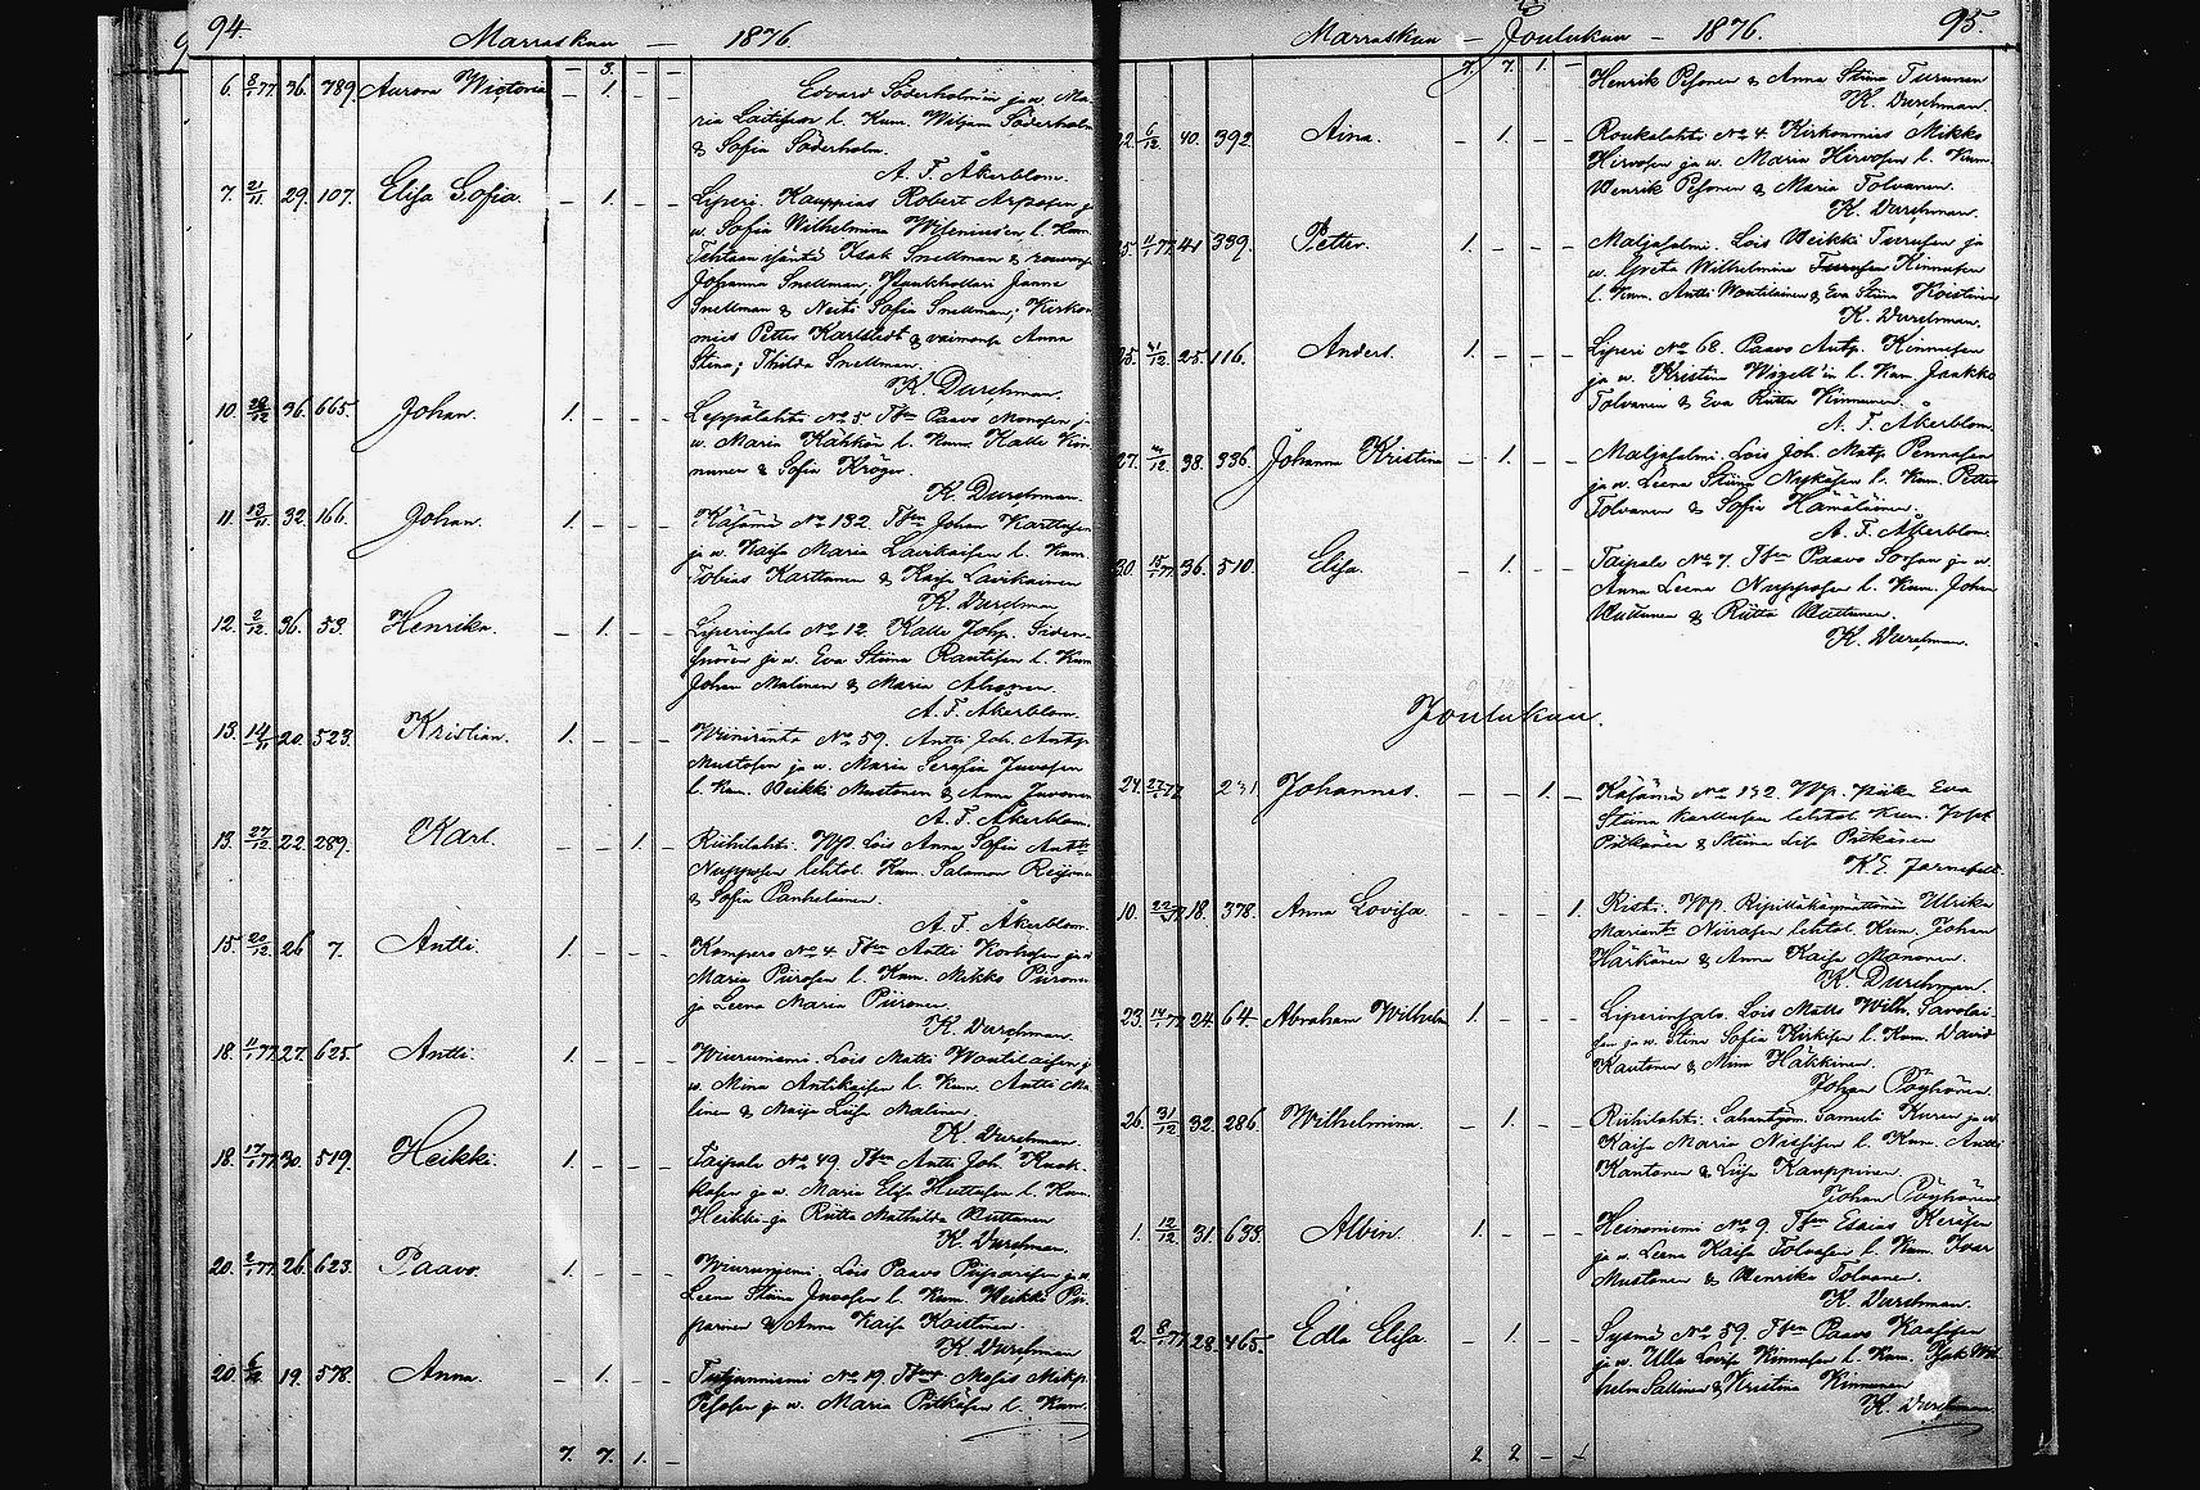 94.
Marraskuu — 1876.
— 3. — —
6. 8/1 77. 36. 789. Aurora Wictoria — 1. — — Edvard Söderholm'in ja w. Ma-
ria Laitisen l. Kum. Wiljam Söderholm
& Sofia Söderholm.
A. F. Åkerblom.
7. 21/11 29. 107. Elisa Sofia. — 1. — — Liperi. Kauppias Robert Arposen ja
w. Sofia Wilhelmina Wileniusen l. Kum.
Tehtaan isäntä Isak Snellman & rouvansa
Johanna Snellman; Janne
Snellman & Neiti Sofia Snellman; Kirkon
mies Petter Karlstedt & vaimonsa Anna
Stina; Thilda Snellman.
K. Durchman.
10. 28/12 36. 665. Johan. 1. — — — Leppälahti No 5. Tsen Paavo Monosen ja
w. Maria Kähkön l. Kum. Kalle Kin-
nunen & Sofia Kröger.
K. Durchman.
11. 13/11 32. 166. Johan. 1. — — — Käsämä No 132. Tsen Johan Karttusen
ja w. Kaisa Maria Lavikaisen l. Kum.
Tobias Karttunen & Kaisa Lavikainen
K. Durchman
12. 2/12 36. 53. Henrika. — 1. — — Liperinsalo No 12. Kalle Johp. Siden-
snören ja w. Eva Stiina Rautisen l. Kum
Johan Malinen & Maria Ahonen.
A. F. Åkerblom.
13. 14/11 20. 523. Kristian. 1. — — — Wiiniranta No 59. Antti Joh. Anttp
Mustosen ja w. Maria Serafia Juvosen
l. Kum. Heikki Mustonen & Anna Juvonen
A. F. Åkerblom.
13. 27/12 22. 289. Karl. — — 1. — Riihilahti. Wp. Lois Anna Sofia Antt
Nupposen lehtol. Kum. Salamon Reijonen
& Sofia Pankelainen.
A. F. Åkerblom.
15. 20/12 26 7. Antti. 1. — — — Kompero No 4. Tsen Antti Korhosen ja w
Maria Piirosen l. Kum. Mikko Piironen
ja Leena Maria Piironen.
K. Durchman.
18. 11/1 77. 27. 625. Antti. 1. — — — Wiiruniemi. Lois Matti Woutilaisen ja
w. Mina Antikaisen l. Kum. Antti Ma
linen & Maija Liisa Malinen.
K. Durchman.
18. 17/1 77 30. 519. Heikki. 1. — — — Taipale No 49. Tsen Antti Joh. Kuok-
kasen ja w. Maria Elisa Huttusen l. Kum.
Heikki ja Riitta Mathilda Huttunen
K. Durchman.
20. 2/1 77. 26. 623. Paavo. 1. — — — Wiiruniemi. Lois Paavo Piiparisen ja w.
Leena Stiina Juvosen l. Kum. Heikki Pii-
parinen & Anna Kaisa Koistinen.
K. Durchman
20. 6/12 19. 578. Anna. — 1. — — Tutjunniemi No 19. Tsen Mosis Mikp.
Pesosen ja w. Maria Pitkäsen l. Kum.
7. 7. 1. —
95.
Marraskuu — Joulukuu — 1876.
7. 7. 1. — Henrik Pesonen & Anna Stiina Turunen
K. Durchman.
22. 6/12. 40. 392. Aina. — 1. — — Roukalahti No 4. Kirkonmies Mikko
Hirvosen ja w. Maria Hirvosen l. Kum.
Henrik Pesonen & Maria Tolvanen.
K. Durchman.
25. 11/1 77. 41 339. Petter. 1. — — — Maljasalmi. Lois Heikki Turusen ja
w. Greta Wilhelmina Turusen Kinnusen
l. Kum. Antti Woutilainen & Eva Stiina Koistinen
K. Durchman.
25. 31/12 25. 116. Anders. 1. — — — Liperi No 68. Paavo Antp. Kinnusen
ja w. Kristina Wigell'in l. Kum. Jaakko
Tolvanen & Eva Riitta Kinnunen.
A. F. Åkerblom.
27. 38. 336. Johanna Kristina — 1. — — Maljasalmi. Lois Joh. Matp. Pennasen
ja w. Leena Stiina Nykäsen l. Kum. Petter
Tolvanen & Sofia Hämäläinen.
A. F. Åkerblom.
30. 15/1 77. 36. 510. Elisa. — 1. — — Taipale No 7. Tsen Paavo Sorsan ja w.
Anna Leena Nupposen l. Kum. Johan
Huttunen & Riitta Huttunen.
K. Durchman.
Joulukuu.
24. 27/1 77 231 Johannes. — — 1. — Käsämä No 132. Wp. piika Eva
Stiina Karttusen lehtol. Kum. Jopt
Pitkänen & Stiina Lisa Pitkänen
K. E. Jarnefelt.
10. 22/1 77 18. 378. Anna Lovisa. — — — 1. Risti. Wp. Ripilläkäymättömän Ulrika
Niirasen lehtol. Kum. Johan
Härkänen & Anna Kaisa Mononen.
K. Durchman.
23. 14/1 77 24. 64. Abraham Wilhelm 1. — — — Liperinsalo. Lois Matts Wilh. Savolai-
sen ja w. Stina Sofia Kirkisen l. Kum. David
Kautonen & Mina Häkkinen.
Johan Pöyhönen.
26. 31/12 32. 286. Wilhelmina. — 1. — — Riihilahti. Sahantyöm. Samuli Kuren ja w
Kaisa Maria Nissisen l. Kum. Antti
Kantonen & Liisa Kauppinen.
Johan Pöyhönen
1. 12/12 31. 633. Albin. 1. — — — Heinoniemi No 9. Tsen Esaias Keräsen
ja w. Leena Kaisa Tolvasen l. Kum. Ivar
Mustonen & Henrika Tolvanen.
K. Durchman.
2. 8/1 77 28. 465. Edla Elisa. — 1. — — Sysmä No 59. Tsen Paavo Kaasisen
ja w. Ulla Lovisa Kinnusen l. Kum. Isak Wil
helm Sallinen & Kristina Kinnunen
K. Durchman.
2 2 — 1